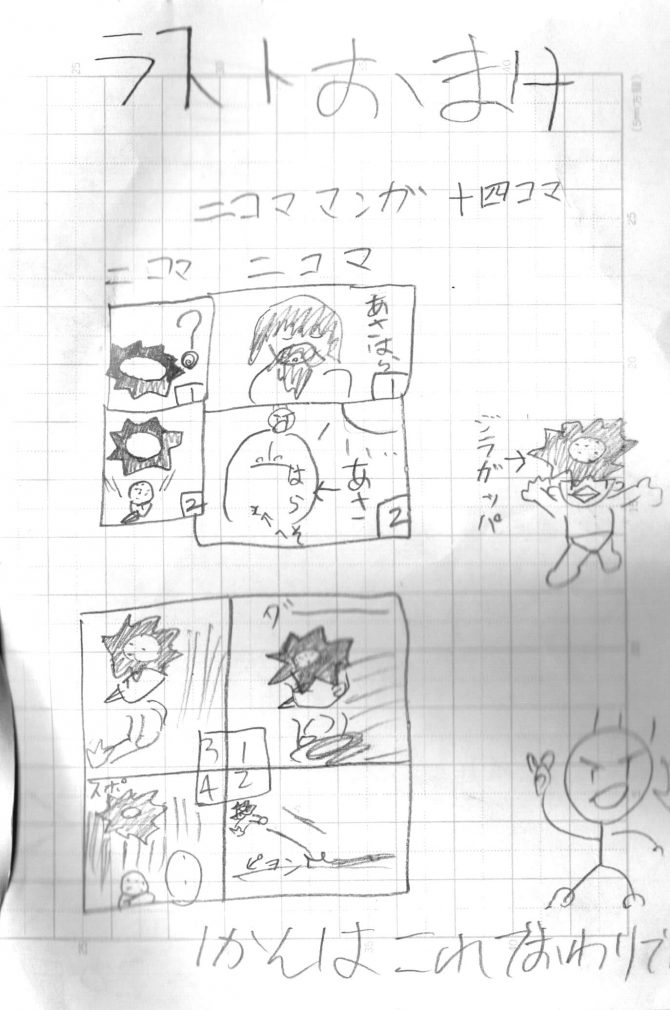 ラストおまけ
二コママンガ+四コマ
二コマ
二コマ
?
1
あさはら
1
2
あさ
はら
へそ
2
ジラガッパ
3
1
4
2
スポ
ピヨン
1かんはこれでおわりで